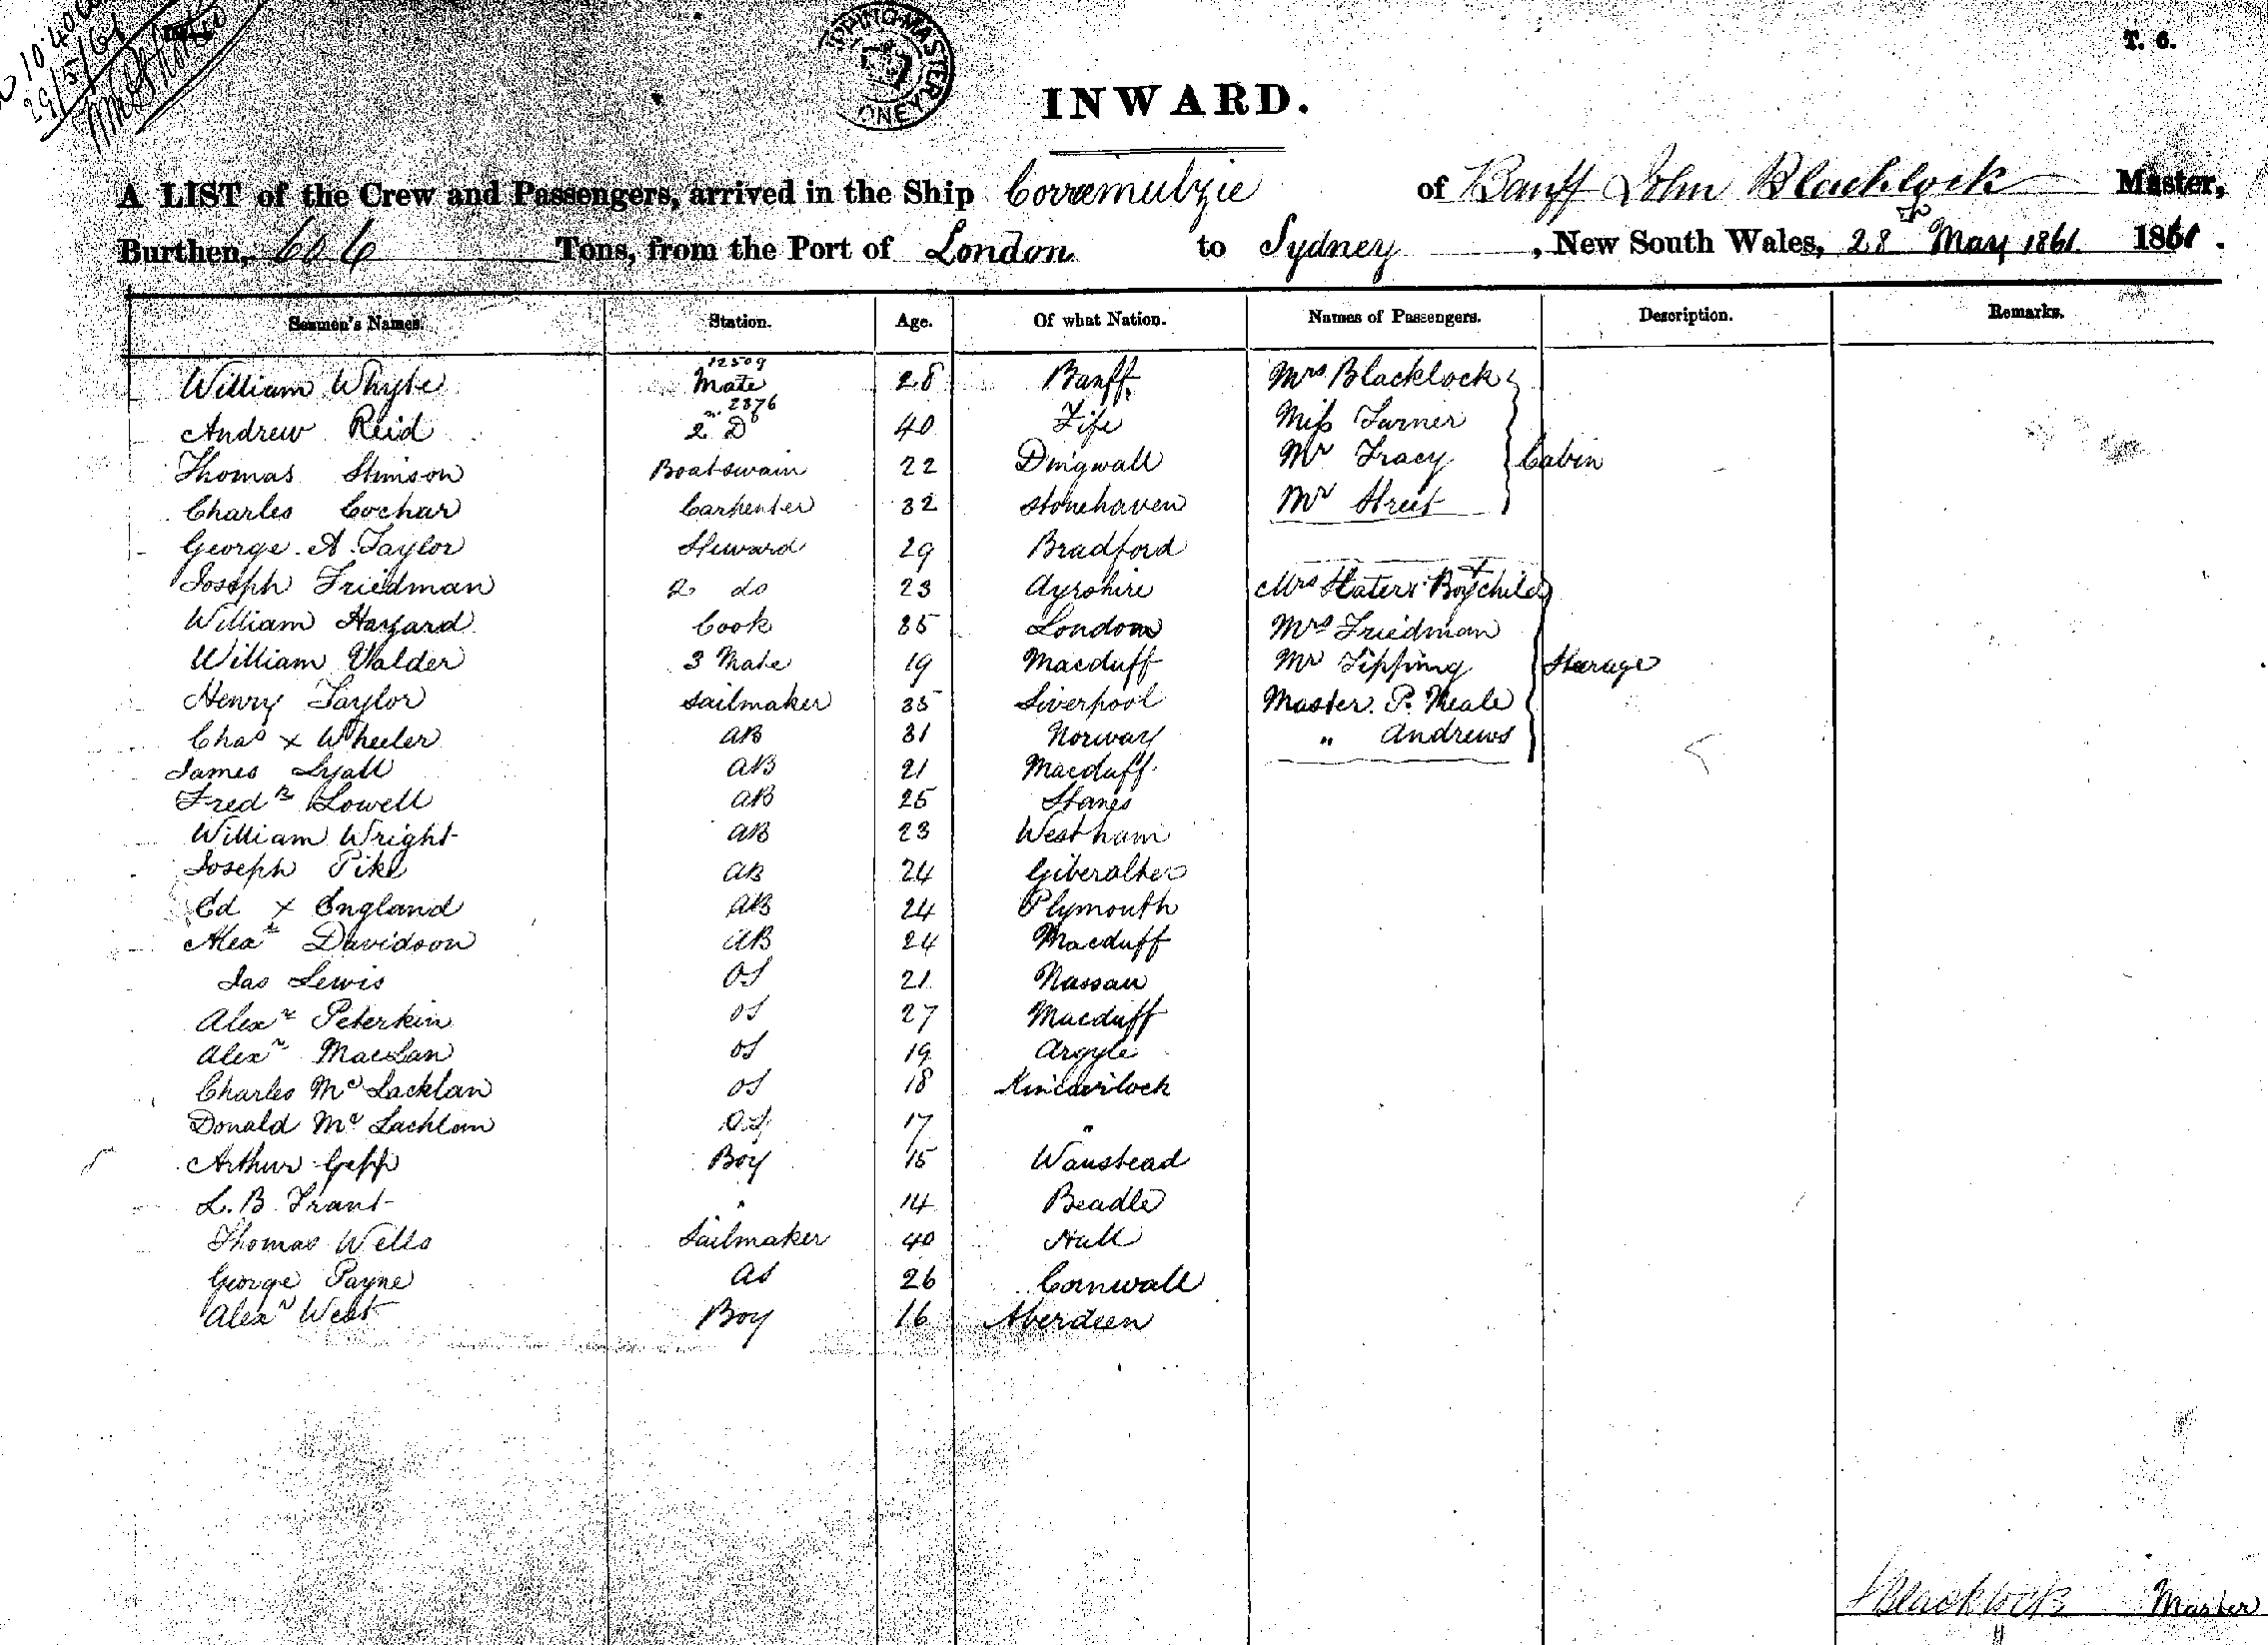 10.40
29/5/61
SHIPPING MASTER
SYDNEY
T. 6.
INWARD.
A LIST of the Crew and Passengers, arrived in the Ship Corriemulzie of Banff John Blacklock Master,
Burthen, 606 Tons, from the Port of London to Sydney, New South Wales, 28th May 1861. 1861.
Seamen's Names. Station. Age. Of what Nation. Names of Passengers. Description. Remarks.
12509
William Whyte Mate 28 Banff Mrs Blacklock
2876
Andrew Reid 2 Do 40 Fife Miss Turner
Thomas Stimson Boatswain 22 Dingwall Mr Tracy Cabin
Charles Cochar Carpenter 32 Stonehaven Mr Street
George A Taylor Steward 29 Bradford
Joseph Friedman 2 do 23 Ayrshire Mrs Slater & Boy child
William Hazzard Cook 35 London Mrs Friedman
William Walder 3 Mate 19 Macduff Mr Tipping Sterage
Henry Taylor Sailmaker 35 Liverpool Master P. Neale
Chas x Wheeler AB 31 Norway " Andrews
James Lyall AB 21 Macduff
Fredk Lowell AB 25 Stanes
William Wright AB 23 Westham
Joseph Pike AB 24 Giberalter
Ed x England AB 24 Plymouth
Alexr Davidson AB 24 Macduff
Jas Lewis OS 21 Nassau
Alexr Peterkin OS 27 Macduff
Alexr MacLan OS 19 Argyle
Charles Mc Lacklan OS 18
Donald Mc Lachlan O.S. 17 "
Arthur Gepp Boy 15 Wanstead
L. B. Trant " 14 Beadle
Thomas Wells Sailmaker 40 Hull
George Payne AS 26 Cornwall
Alexr West Boy 16 Aberdeen
J Blacklock Master